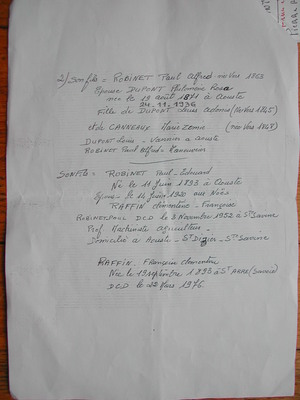 2/ Son fils = ROBINET Paul Alfred - né vers 1868
Epouse DUPONT Philomène Rosa
née le 19 août 1871 à Aouste
24.11.1936
Fille de DUPONT Louis Adonis (Né Vers 1845)
et de CANNEAUX Marie Zoma (née Vers 1848)
DUPONT Louis - Vannier à Aouste
ROBINET Paul Alfred - Manouvrier
SON Fils = ROBINET Paul - Edouard
Né le 11 Juin 1893 à Aouste
Epouse - le 14 Juin 1920 aux Noës
RAFFIN Clémentine - Françoise
ROBINET PAUL DCD le 3 Novembre 1952 à Ste Savine
Prof Machiniste agriculteur -
Domicilié à Aouste - St Dizier - Ste Savine
RAFFIN - Françoise Clémentine
Née le 19 septembre 1893 à St ARRE (Savoie)
DCD le 22 Mars 1976